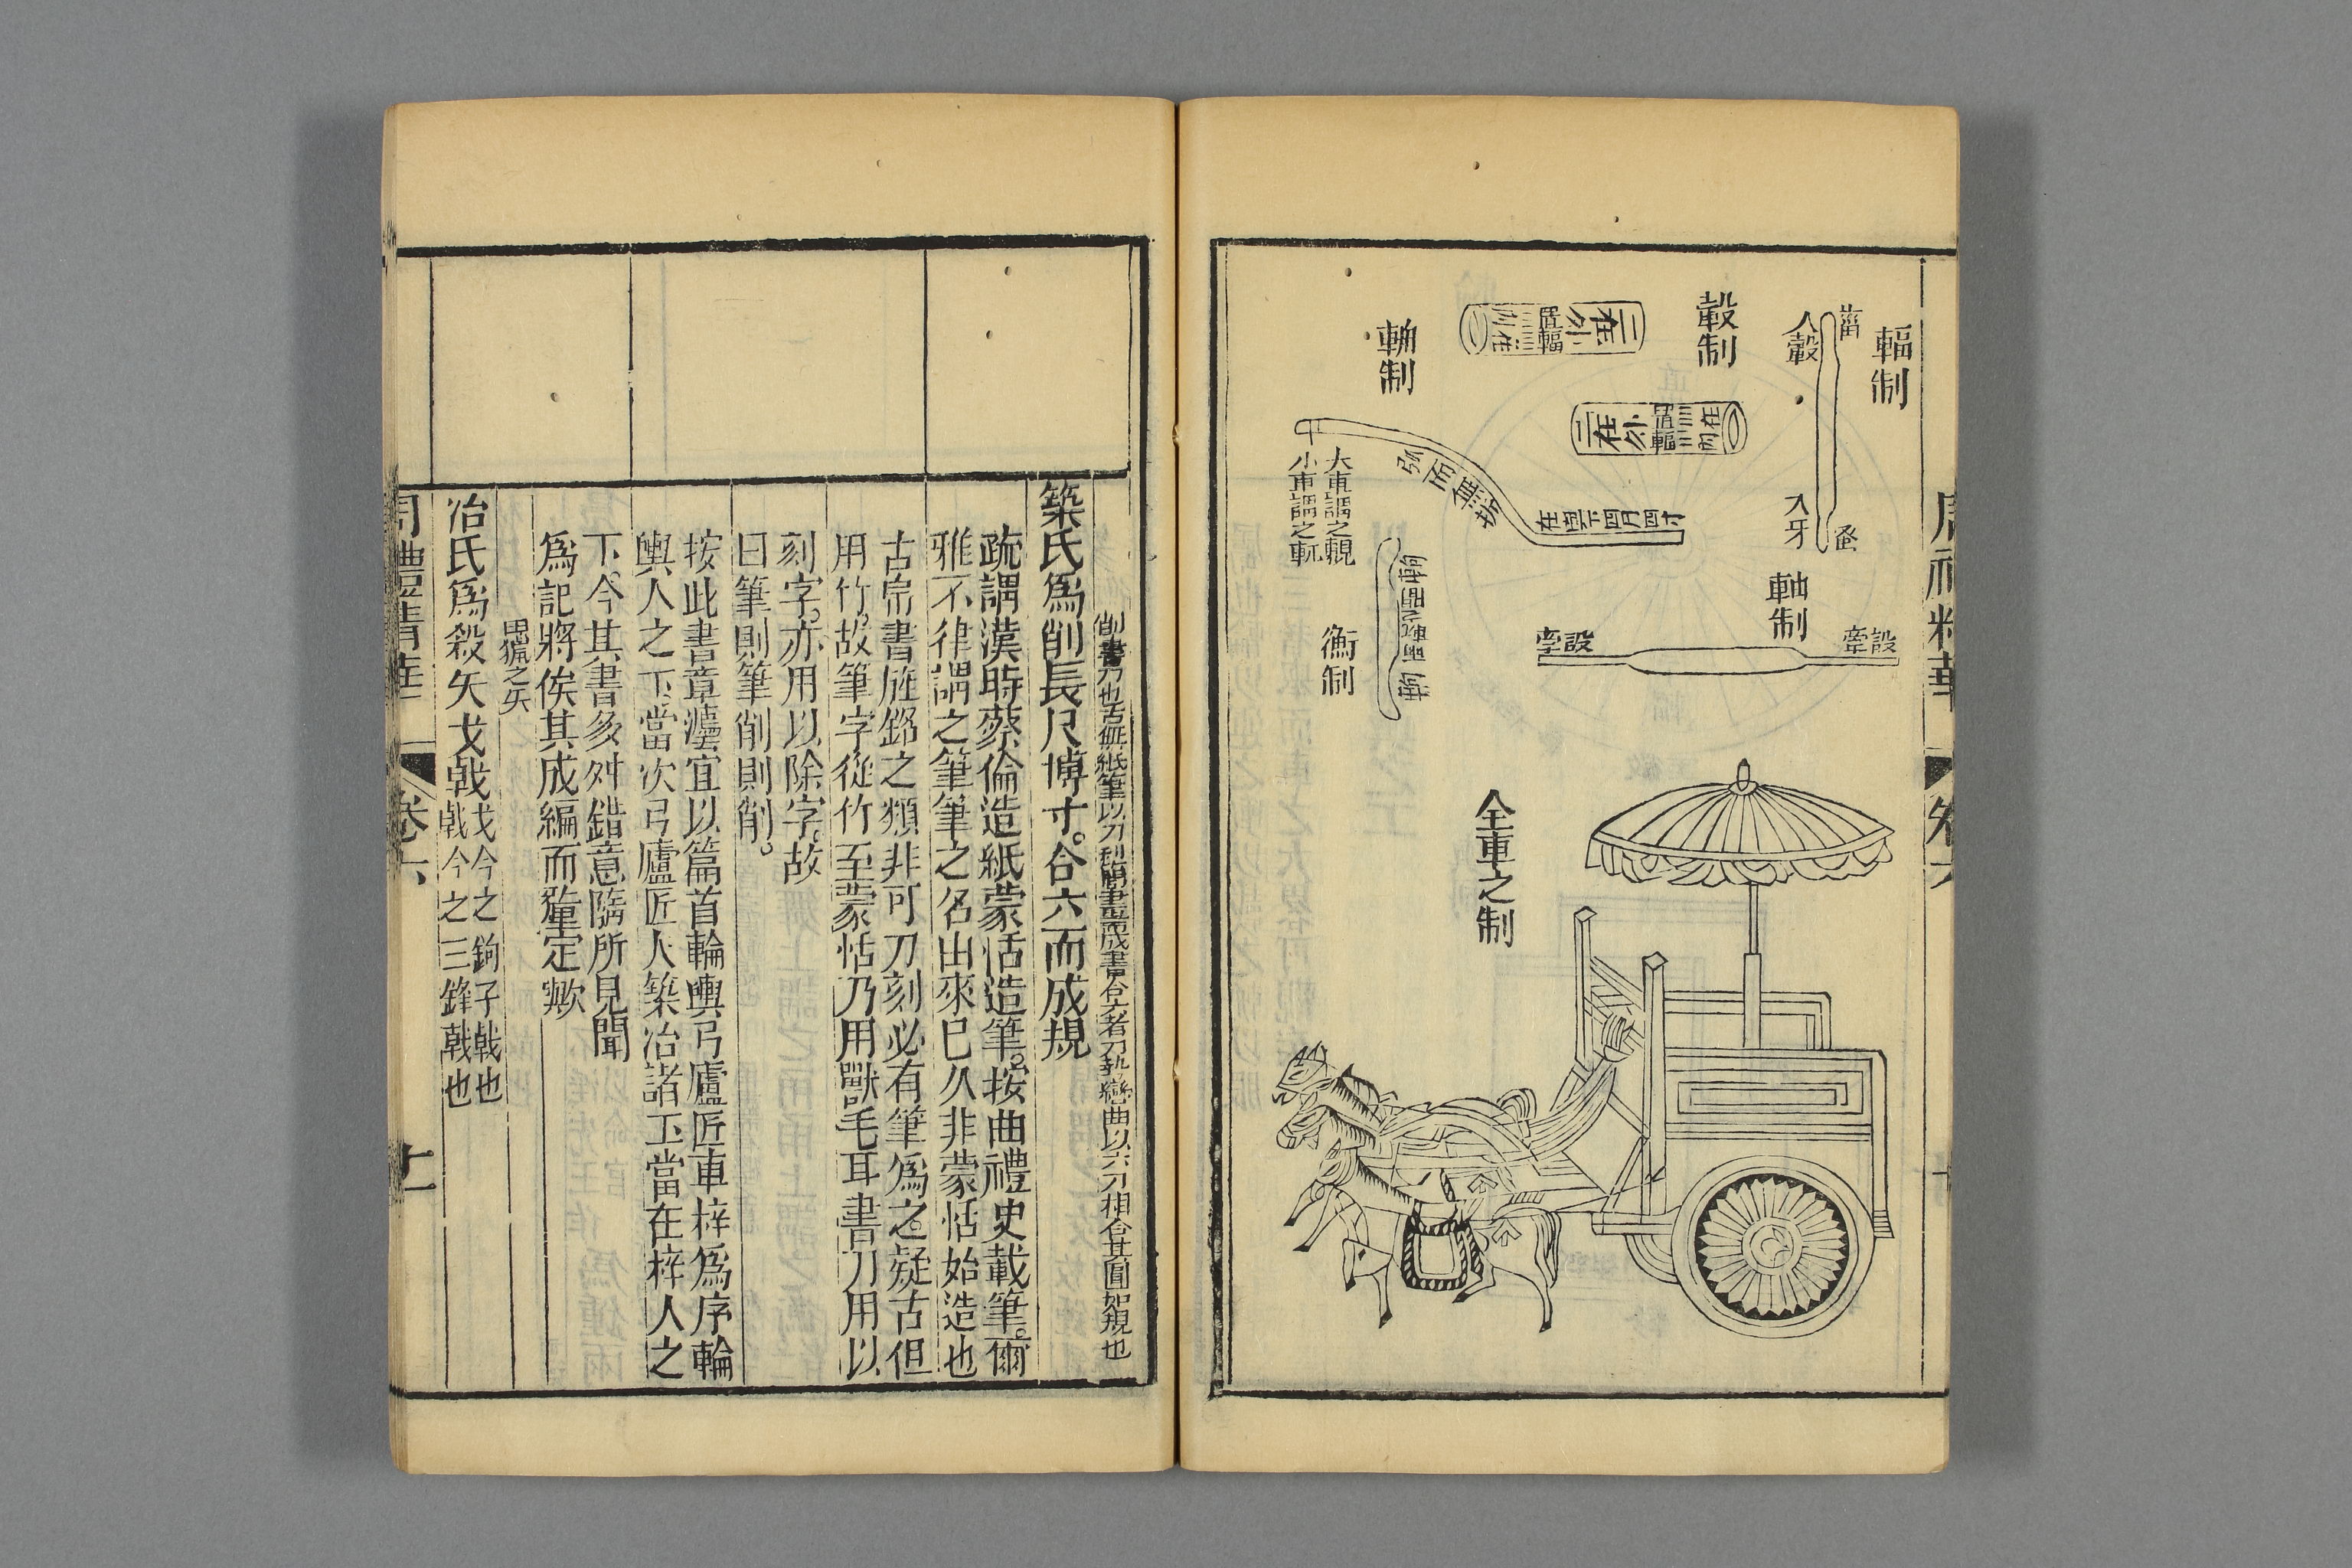 輻制
菑
入轂
入牙
蚤
轂制
軸制
設牽
設牽
輈制
弥而無折
大車謂之輗
小車謂之軏
衡制
全車之制
削書刀也古無紙筆以刀刻簡畫成書合六者刀勢彎曲以六刀相合其圓如規也
築氏爲削長尺博寸。合六而成規
疏謂漢時蔡倫造紙蒙恬造筆。按曲禮史載筆。爾
雅不律謂之筆筆之名出來已久非蒙恬始造也
古帛書旌銘之類非可刀刻必有筆爲之疑古但
用竹。故筆字從竹至蒙恬乃用獸毛耳書刀用以
刻字。亦用以除字。故
曰筆則筆削則削。
按此書章灋宜以篇首輪輿弓廬匠車梓爲序輪
輿人之下。當次弓廬匠人築冶諸工當在梓人之
下。今其書多舛錯意隨所見聞
爲記將俟其成編而釐定歟
田獵之矢
冶氏爲殺矢戈戟
戈今之鉤子戟也
戟今之三鋒戟也
卷六
十一